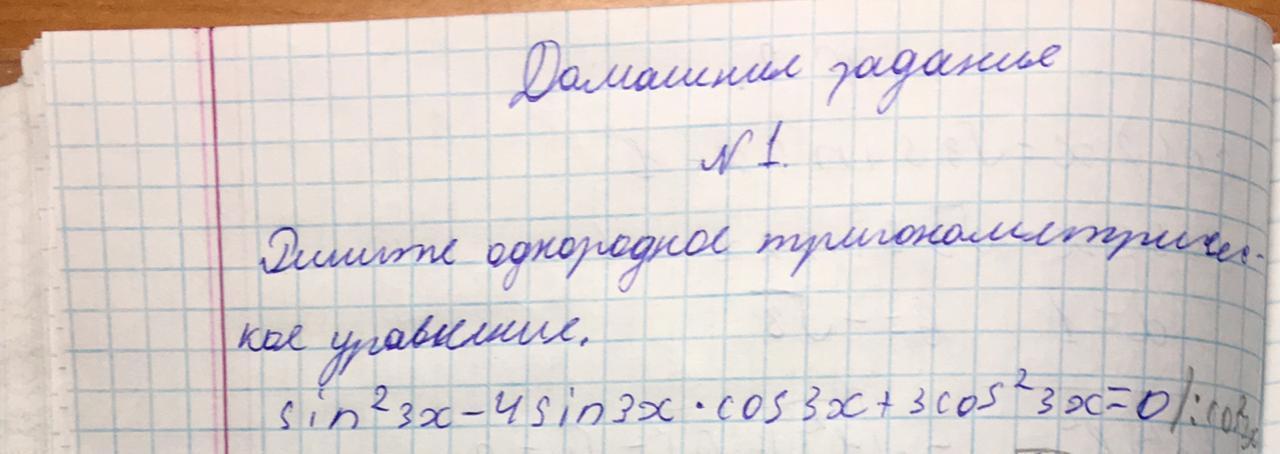 Домашние задание
N 1.
Решите однородное тригонометричес-
кое уравнение.
sin²3x-4sin3x·cos3x+3cos²3x=0/:cos²3x